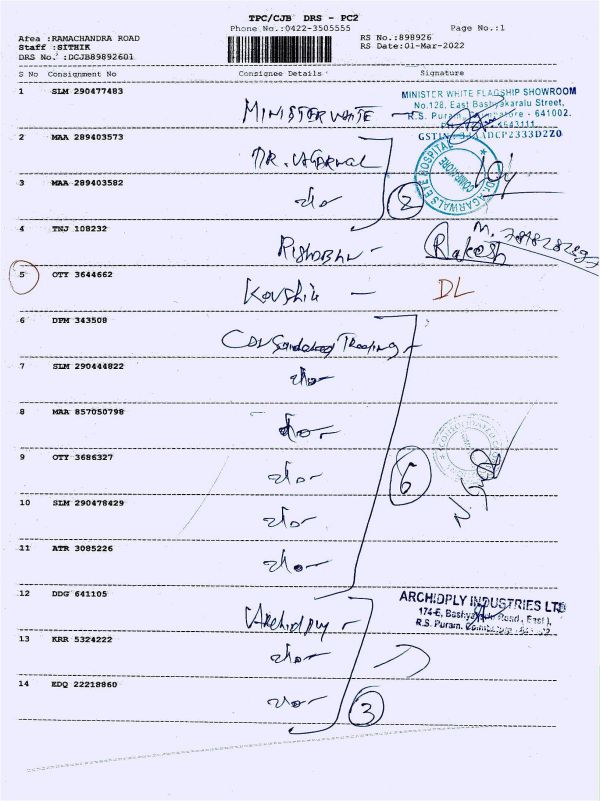 TPC/CJB DRS - PC2
Phone No.:0422-3505555 Page No.:1
Area :RAMACHANDRA ROAD RS No.:898926
Staff :SITHIK RS Date:01-Mar-2022
DRS No. :DCJB89892601
S No Consignment No Consignee Details Signature
1 SLM 290477483
MINISTER WHITE FLAGSHIP SHOWROOM
No.128, East Bashyakaralu Street,
MINISTER WHITE R.S. Puram, Coimbatore - 641002.
GSTIN
2 MAA 289403573
DR. AGARWAL
DR. AGARWALS EYE HOSPITAL
COIMBATORE
3 MAA 289403582
do 2
4 TNJ 108232
Rishabh - Rakesh
5 OTY 3644662
Koushik - DL
6 DPM 343508
Consolidated Trading
7 SLM 290444822
do
8 MAA 857050798
do
9 OTY 3686327
do 6
10 SLM 290478429
do
11 ATR 3085226
do
12 DDG 641105
ARCHIDPLY INDUSTRIES LTD
174-E, Bashyakaralu Road, East),
Archidply R.S. Puram, Coimbatore
13 KRR 5324222
do
14 EDQ 22218860
do 3